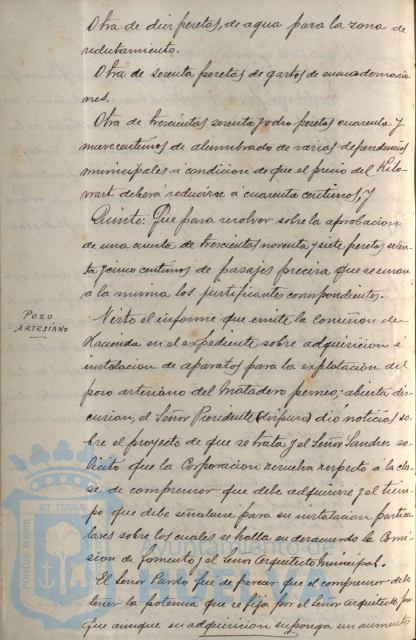 Otra de diez pesetas, de agua para la zona de
reclutamiento.
Otra de sesenta pesetas de gastos de encuadernacio
nes.
Otra de trescientas sesenta y ocho pesetas cuarenta y
nueve centimos de alumbrado de varias dependencias
municipales á condicion de que el precio del Kilo-
wart deberá reducirse á cuarenta centimos, y
Quinto: Que para resolver sobre la aprobacion
de una cuenta de trescientas noventa y siete pesetas seten
ta y cinco centimos de pasajes precisa que se unan
á la misma los justificantes correspondientes.
POZO
ARTESIANO
Visto el informe que emite la Comision de
Hacienda en el expediente sobre adquisicion é
instalacion de aparatos para la explotacion del
pozo artesiano del Matadero y abierta dis-
cusion, el Señor Presidente dió noticias so
bre el proyecto de que se trata y el Señor so
licitó que la Corporacion resuelva respecto á la cla
se de compresor que debe adquirirse y al tiem
po que debe señalarse para su instalacion particu
lares sobre los cuales se halla en desacuerdo la Comi
sion de fomento y el Señor Arquitecto Municipal.
El Señor Pardo fué de parecer que el compresor debe
tener la potencia que se fija por el Señor Arquitecto por
que aunque su adquisicion suponga un aumento
ET TERRAE
PORTUS MARIS
Ayuntamiento de
HUELVA